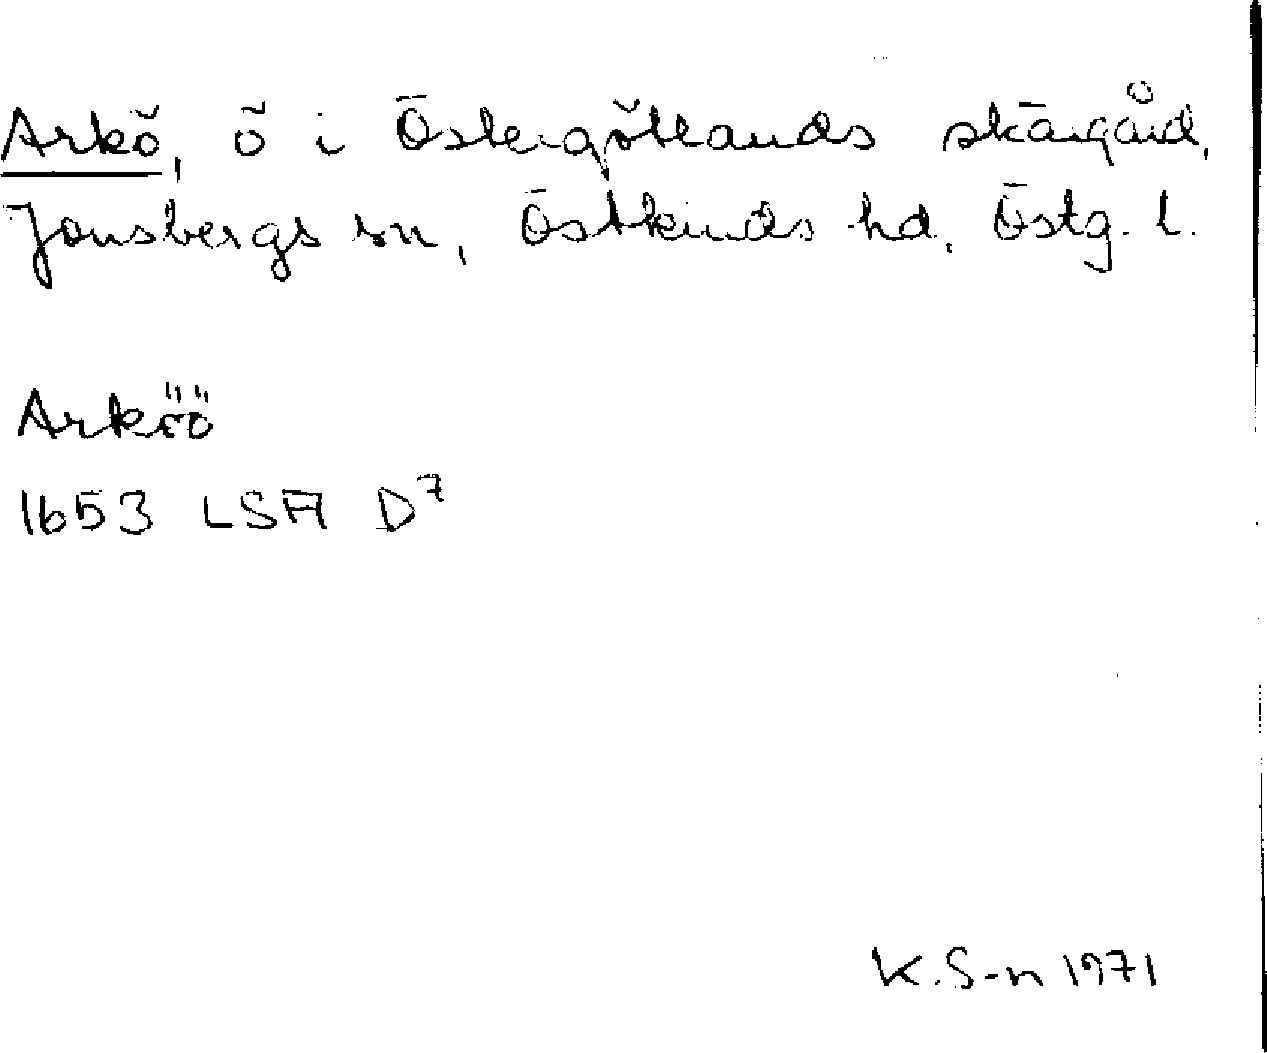 Arkö, ö i Östergötlands skärgård,
Jonsbergs sn, Östkinds hd, Östg. l.
Arköö
1653 LSA D7
K.S-n 1971